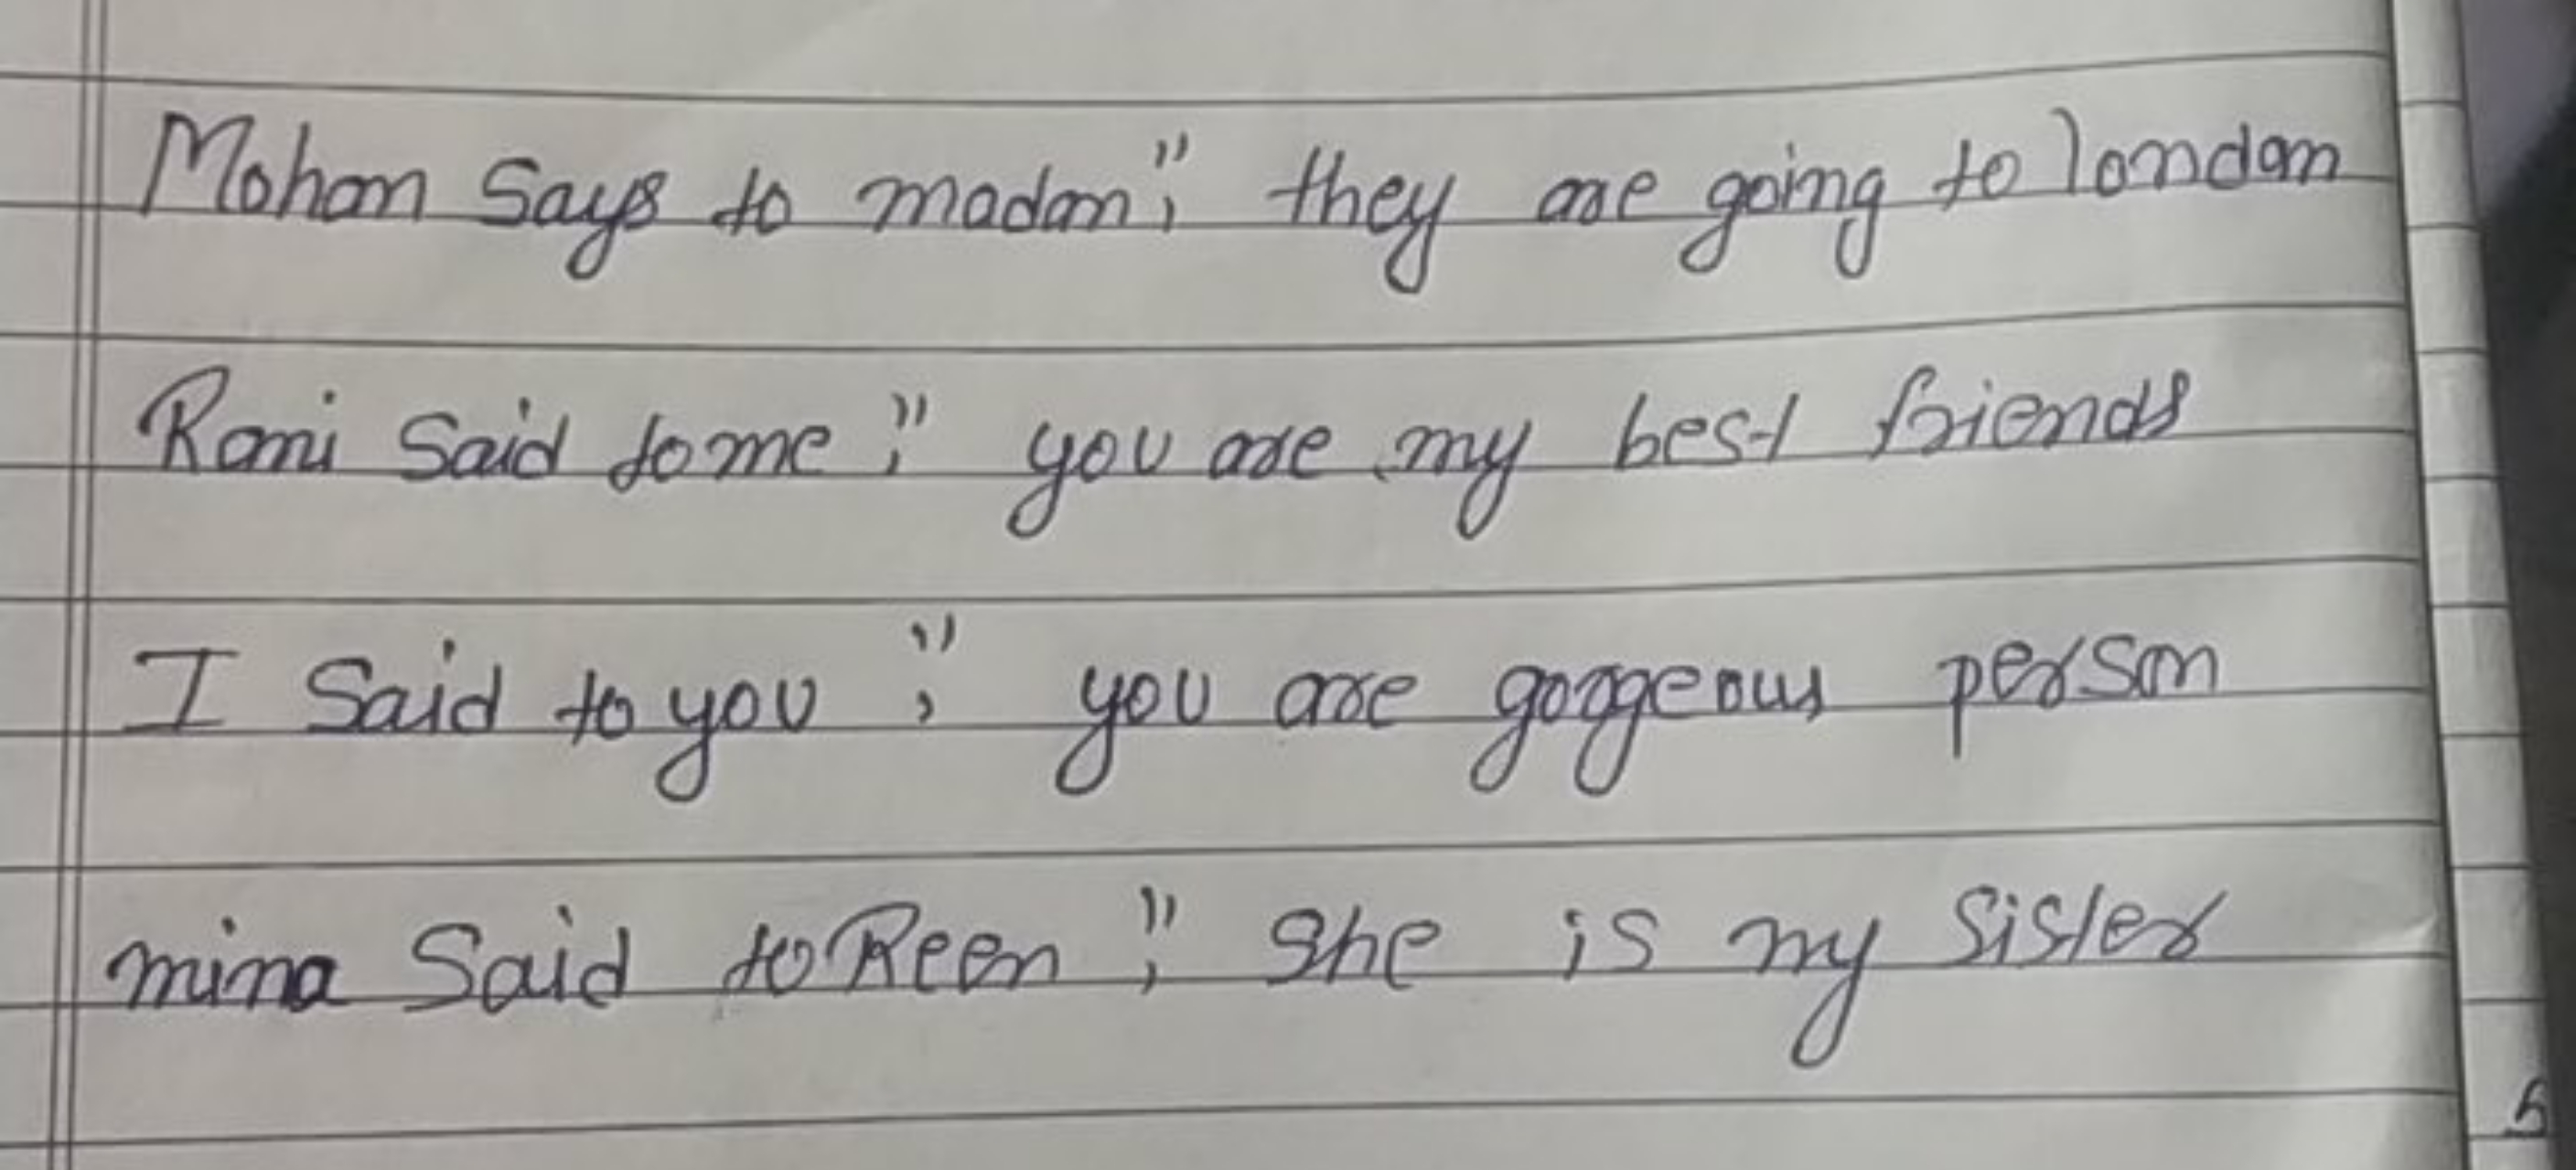 Mohan Says to madan," they are going to london
Rani Said to me," you are my best friends
I Said to you," you are gorgeous person
mina Said to Reen," She is my Sister